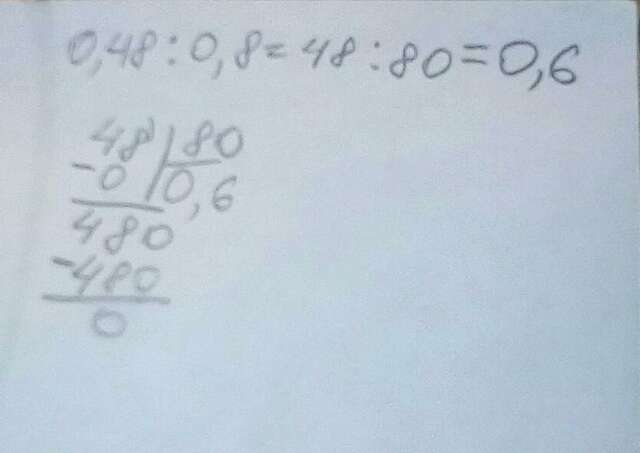 0,48:0,8=48:80=0,6
48 80
-0 0,6
480
-480
0